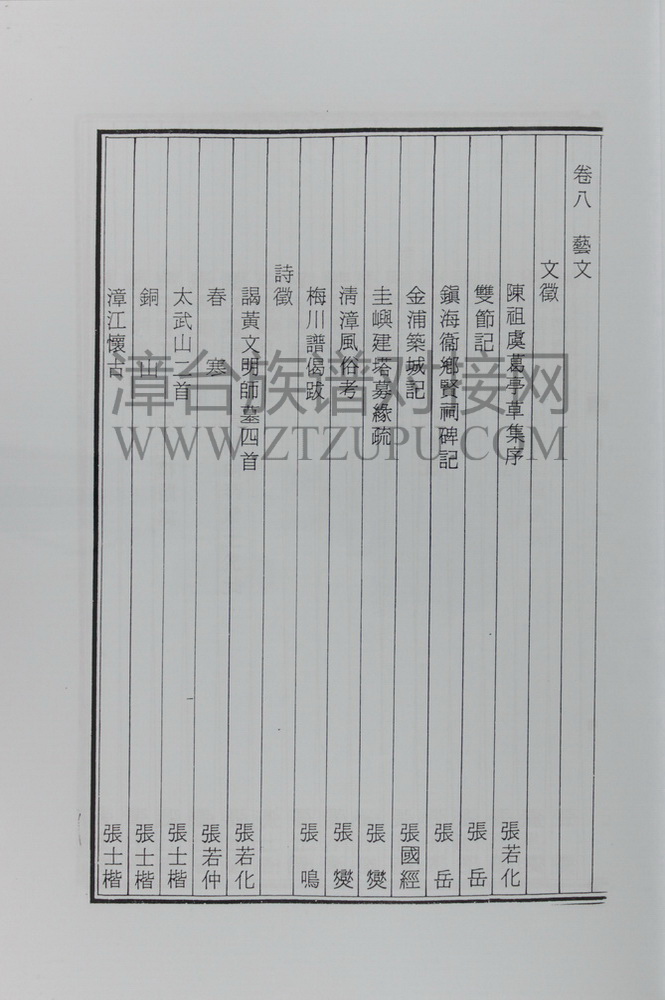 卷八　藝文
文徵
陳祖虞葛亭草集序　張若化
雙節記　張岳
鎮海衞鄉賢祠碑記　張岳
金浦築城記　張國經
圭嶼建塔募緣疏　張燮
清漳風俗考　張燮
梅川譜偈跋　張鳴
詩徵
謁黃文明師墓四首　張若化
春寒　張若仲
太武山二首　張士楷
銅山　張士楷
漳江懷古　張士楷
漳台族谱对接网
WWW.ZTZUPU.COM